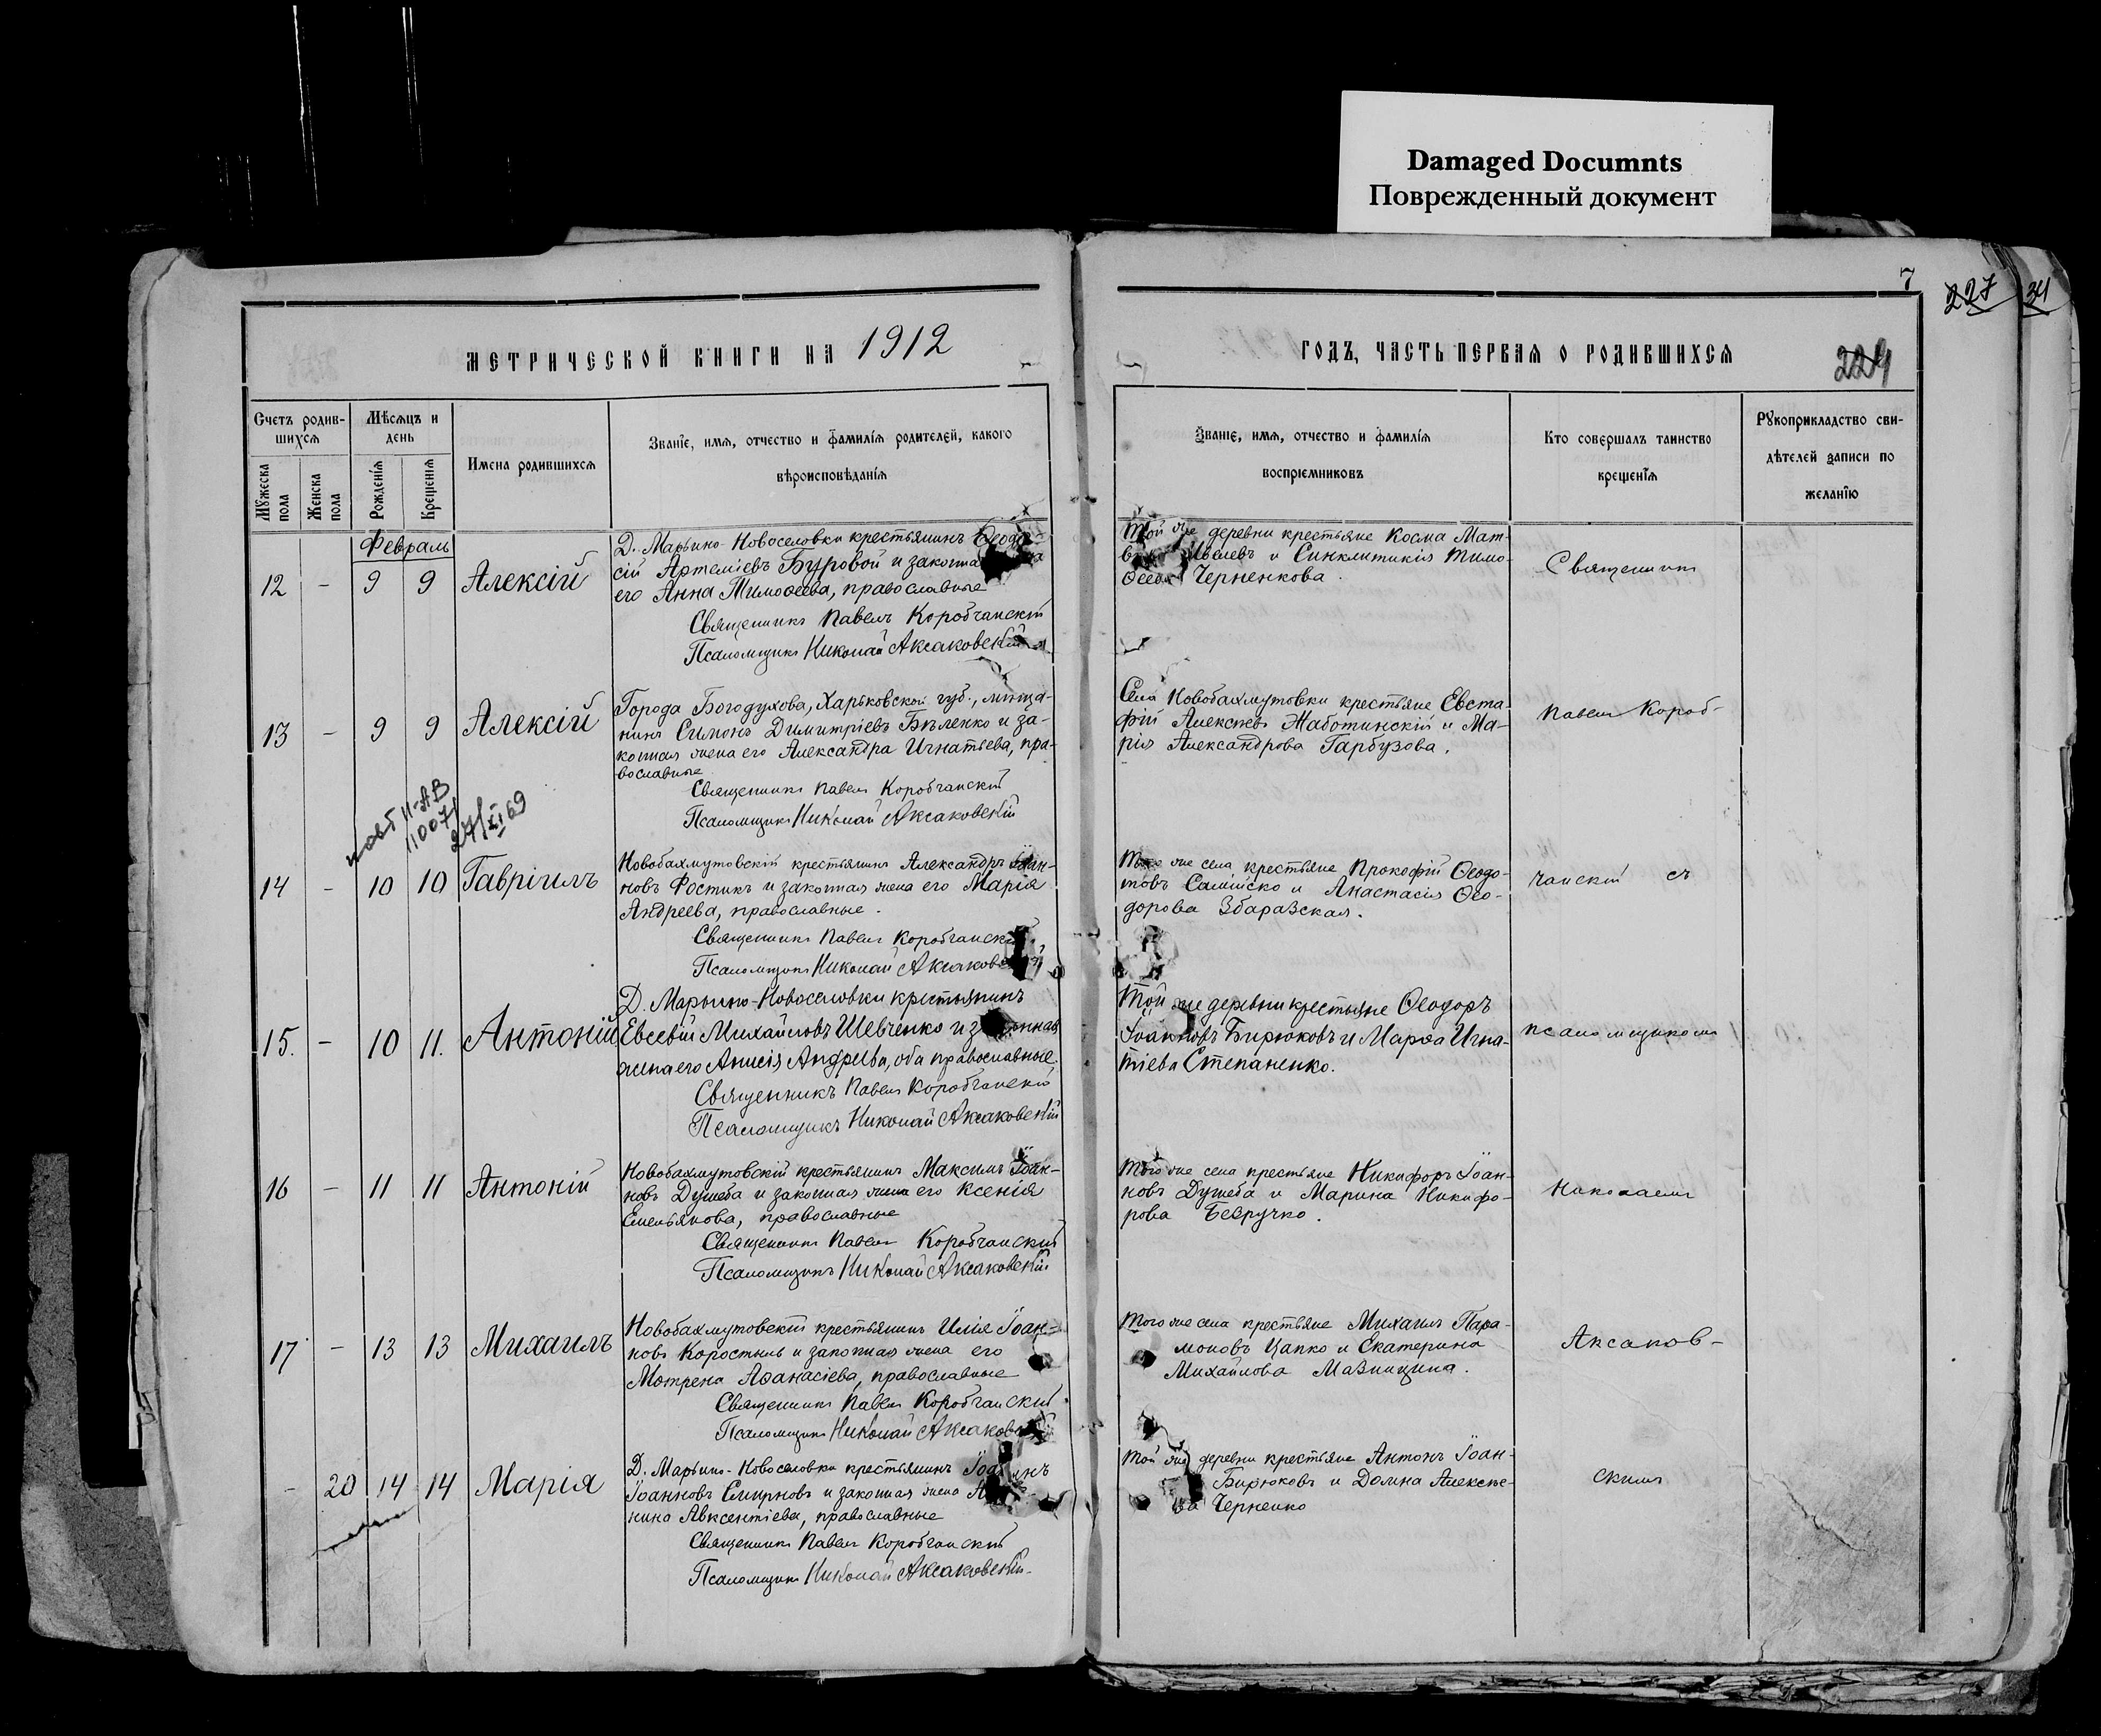 Damaged Documnts
Поврежденный документ
7
227
34
МЕТРИЧЕСКОЙ КНИГИ НА 1912
ГОДЪ, ЧАСТЬ ПЕРВАЯ О РОДИВШИХСЯ
224
Счетъ родив-
шихся
Мѣсяцъ и
день
Мужеска
пола
Женска
пола
Рожденія
Крещенія
Имена родившихся
Званіе, имя, отчество и фамилія родителей, какого
вѣроисповѣданія
Званіе, имя, отчество и фамилія
воспріемниковъ
Кто совершалъ таинство
крещенія
Рукоприкладство сви-
дѣтелей записи по
желанію
Февраль
12 - 9 9 Алексій
Д. Марьино-Новоселовки крестьянинъ Ѳеодо-
сій Артеміевъ Буровой и законная
его Анна Тимоѳеева, православные
Священникъ Павелъ Коробчанскій
Псаломщикъ Николай Аксаковскій
Той же деревни крестьяне Косма Мат-
Ивлевъ и Синклитикія Тимо-
ѳеева Черненкова.
Священникъ
13 - 9 9 Алексій
Города Богодухова, Харьковской губ., мѣща-
нинъ Симонъ Димитріевъ Бѣленко и за-
конная жена его Александра Игнатьева, пра-
вославные
Священникъ Павелъ Коробчанскій
Псаломщикъ Николай Аксаковскій
Села Новобахмутовки крестьяне Евста-
фій Алексѣевъ Жаботинскій и Ма-
рія Александрова Гарбузова.
Павелъ Короб-
II-АВ
11007
27/XI 69
14 - 10 10 Гавріилъ
Новобахмутовскій крестьянинъ Александръ Іоан-
новъ Фостикъ и законная жена его Марія
Андреева, православные.
Священникъ Павелъ Коробчанскій
Псаломщикъ Николай Аксаковскій
Того же села крестьяне Прокофій Ѳеодо-
товъ Самійско и Анастасія Ѳео-
дорова Збаразская.
чанскій съ
15. - 10 11. Антоній
Д. Марьино-Новоселовки крестьянинъ
Евсевій Михайловъ Шевченко и законная
жена его Анисія Андреева, оба православные.
Священникъ Павелъ Коробчанскій
Псаломщикъ Николай Аксаковскій
Той же деревни крестьяне Ѳеодоръ
Іоанновъ Бирюковъ и Марѳа Игна-
тіева Степаненко.
псаломщикомъ
16 - 11 11 Антоній
Новобахмутовскій крестьянинъ Максимъ Іоан-
новъ Душеба и законная жена его Ксенія
Емельянова, православные
Священникъ Павелъ Коробчанскій
Псаломщикъ Николай Аксаковскій
Того же села крестьяне Никифоръ Іоан-
новъ Душеба и Марина Никифо-
рова Безручко.
Николаемъ
17 - 13 13 Михаилъ
Новобахмутовскій крестьянинъ Илія Іоан-
новъ Коростыль и законная жена его
Мотрена Аѳанасіева, православные
Священникъ Павелъ Коробчанскій
Псаломщикъ Николай Аксаковскій
Того же села крестьяне Михаилъ Пара-
моновъ Цапко и Екатерина
Михайлова Мазницина.
Аксаков-
- 20 14 14 Марія
Д. Марьино-Новоселовки крестьянинъ Іоаннъ
Іоанновъ Смирновъ и законная жена
нина Авксентіева, православные
Священникъ Павелъ Коробчанскій
Псаломщикъ Николай Аксаковскій
Той же деревни крестьяне Антонъ Іоан-
Бирюковъ и Домна Алексѣе-
ва Черненко
скимъ